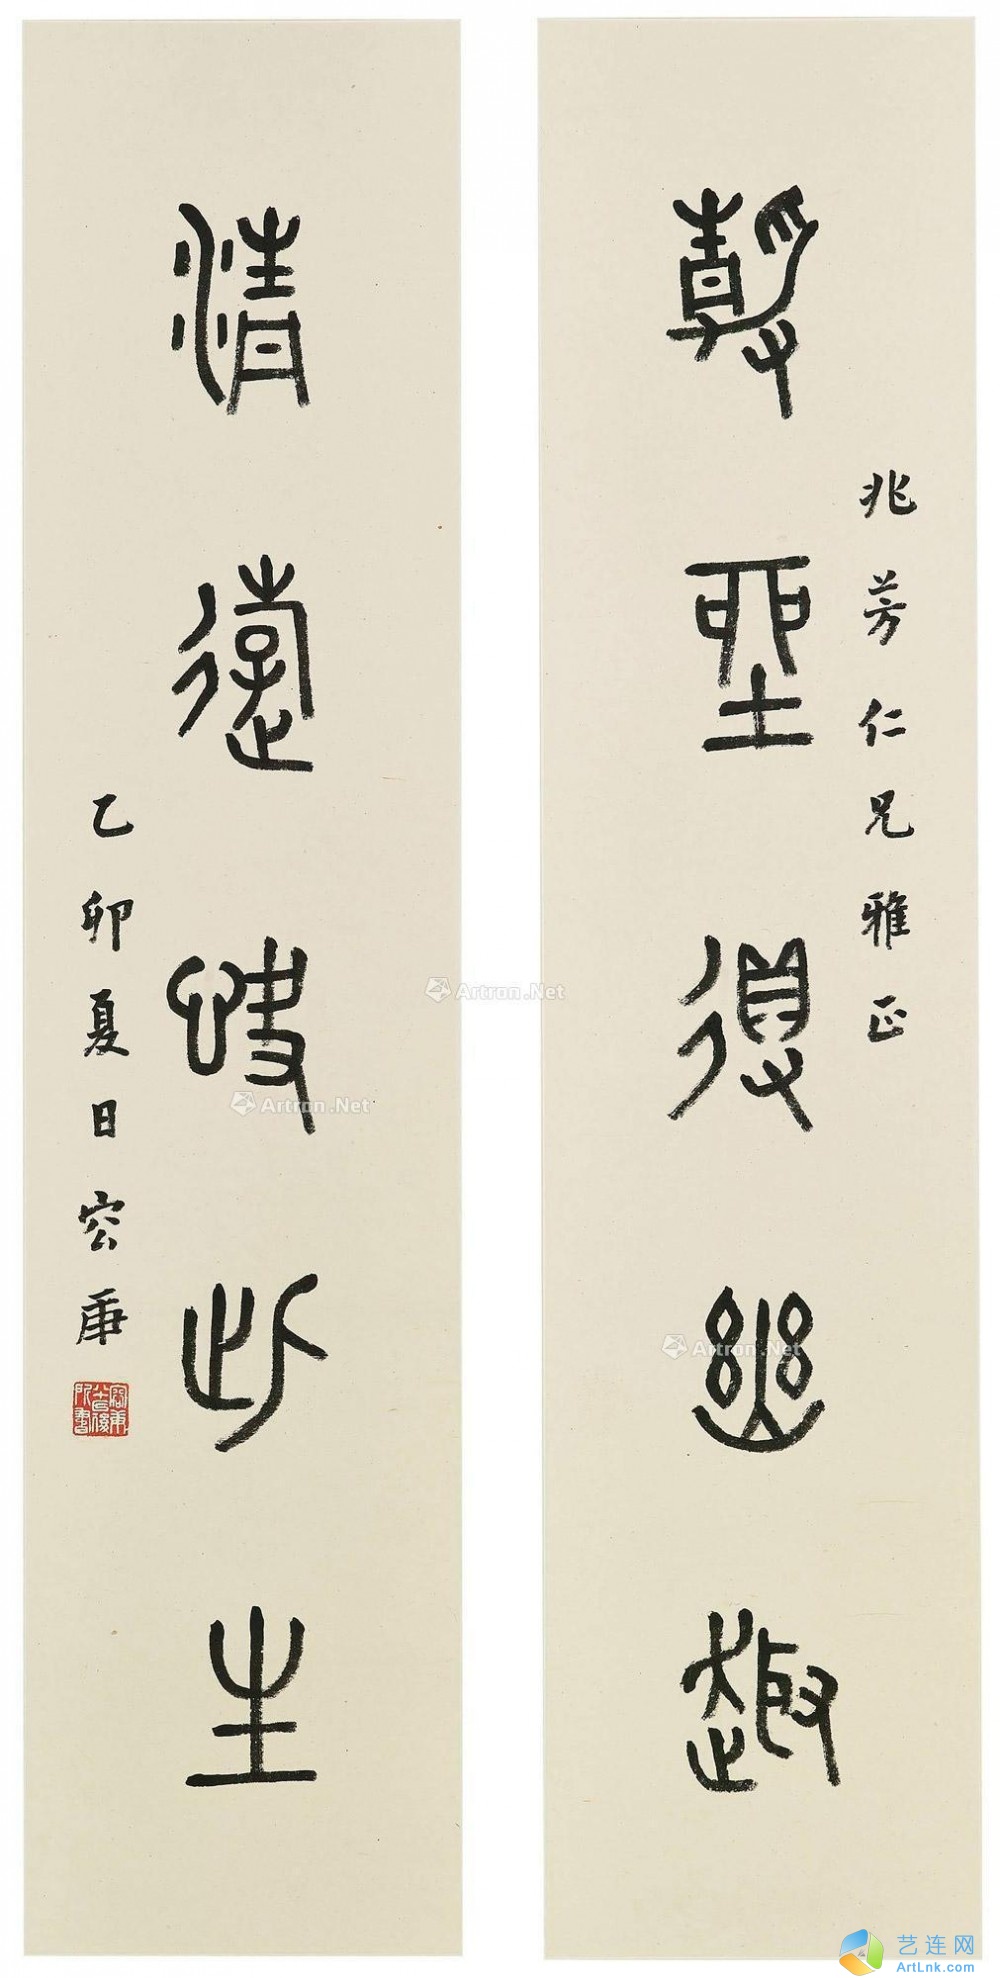 靜坐得幽趣
兆芳仁兄雅正
清遊快此生
乙卯夏日容庚
容庚八十後所書
Artron.Net
Artron.Net
Artron.Net
艺连网
ArtLnk.com